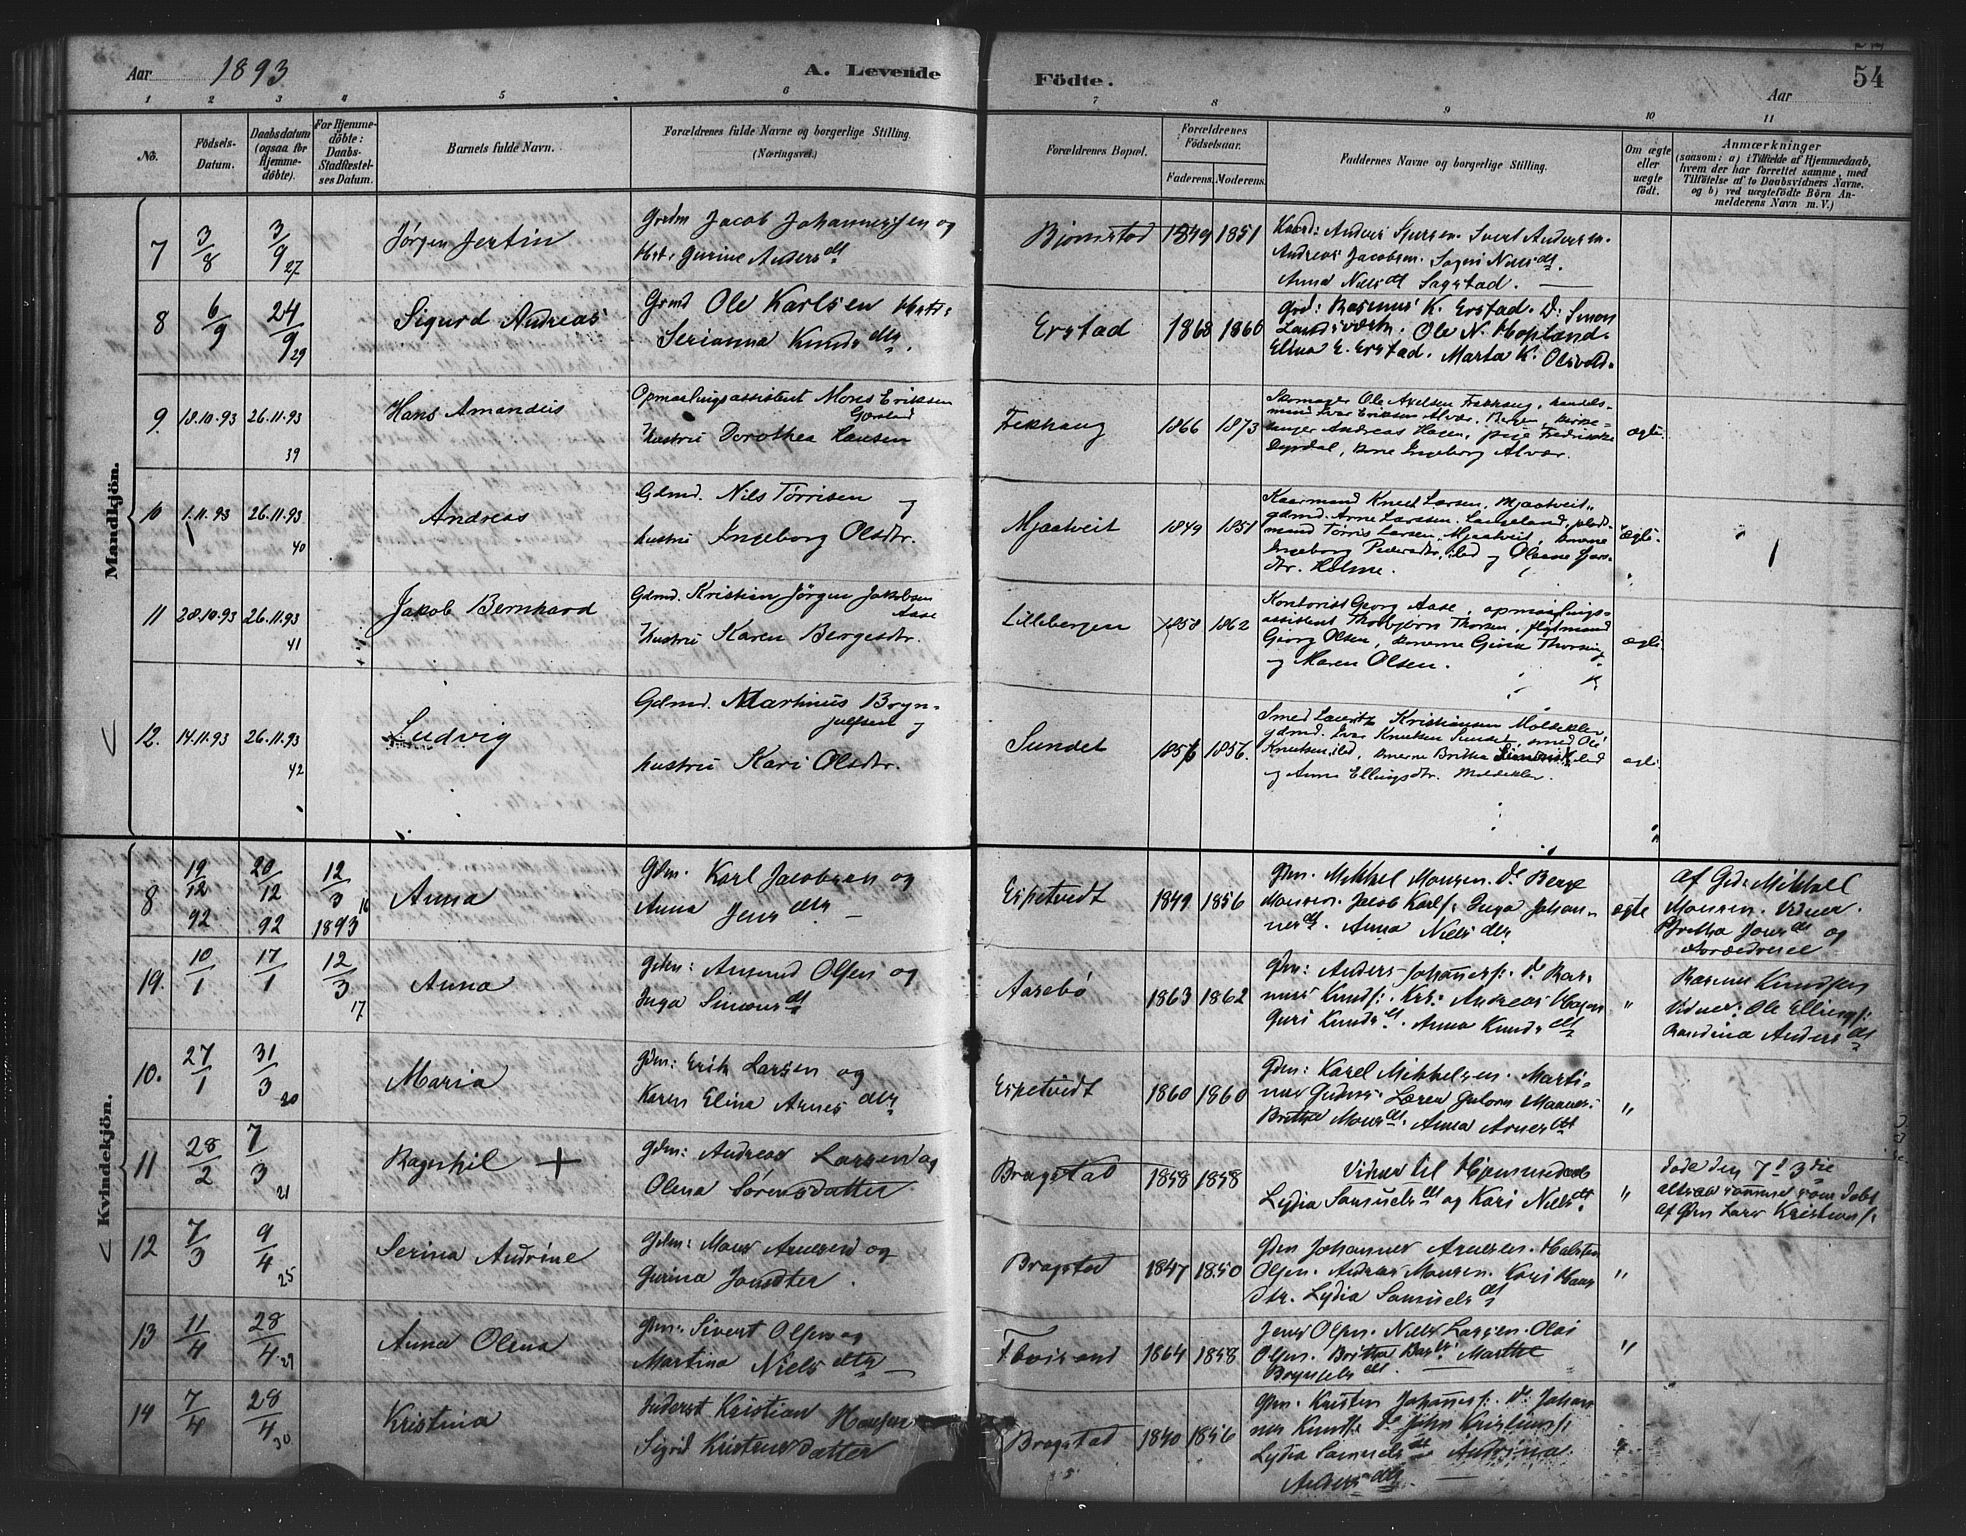 Aar 1893
A. Levende Födte.
Aar
54
1 2 3 4 5 6 7 8 9 10 11
No.
Födsels-Datum.
Daabsdatum (ogsaa for Hjemme-döbte).
For Hjemme-döbte: Daabs-Stadfæstel-ses Datum.
Barnets fulde Navn.
Forældrenes fulde Navne og borgerlige Stilling. (Næringsvei.)
Forældrenes Bopæl.
Forældrenes Födselsaar.
Faderens. Moderens.
Faddernes Navne og borgerlige Stilling.
Om ægte eller uægte födt.
Anmærkninger
(saasom: a) i Tilfælde af Hjemmedaab,
hvem der har forrettet samme, med
Tilföielse af to Daabsvidners Navne.
og b) ved uægtefödte Börn An-
melderens Navn m. V.)
Mandkjön.
7 3/8 3/9 27 Jørgen Jertin
Grdm Jacob Johannessen og
Hst. Gurine Anders dt
Bjørnstad 1849 1851
Andreas Jacobsen.
Anna Niels dt Sagstad.
8 6/9 24/9 29 Sigurd Andreas
Grmd Ole Karlsen Hst:
Serianna Knuds dtr.
Erstad 1868 1860
Grd: Rasmus K. Erstad. D: Simon
Ole N. Hopland.
Elina E. Erstad. Marta K. Olsvold.
9. 18.10.93 26.11.93 39 Hans Amandeus
Opmaalingsassistent Mons Eriksen
Hustru Dorothea Hansen
Fekhaug 1866 1873
Skomager Ole Axelsen Fekhaug, handels-
mand Ivar Eriksen Alvær, Bergen, kirke-
sanger Andreas Hagen, pige Fredrikke
Dyrdal, kone Ingeborg Alvær.
ægte.
10 1.11.93 26.11.93 40 Andreas
Gdmd. Nils Tørrisen og
hustru Ingeborg Olsdtr.
Mjaatveit 1849 1851
Kaarmand Knud Larsen, Mjaatveit,
gdmd. Arne Larsen, Langeland, plads-
mand Tørris Larsen, Mjaatveit, konerne
Ingeborg Pedersdtr, ibd og Oleane Jans-
dtr. Holme.
ægte.
11 28.10.93 26.11.93 41 Jakob Bernhard
Gdmd. Kristian Jørgen Jakobsen
Aase
Hustru Karen Bergesdtr.
Lillebergen 1858 1862
Kontorist Georg Aase, opmaalings-
assistent Thorbjørn Thorsen, fløtmand
Georg Olsen, konerne
og Maren Olsen.
ægte.
12. 14.11.93 26.11.93 42 Ludvig
Gdmd. Martinus Bryn-
julfsen og
hustru Kari Olsdtr.
Sundet 1856 1856.
Smed Lauritz Kristiansen Moldekler,
gdmd. Ivar Knutsen Sundet, smed Ole
Knutsen, ibd, konerne Britha ibd
og Anna Ellingsdtr. Moldekler.
ægte.
Kvindekjön.
8 19/12 92 20/12 92 12/3 1893 16 Anna
Gdm. Karl Jacobsen og
Anna Jens dtr
Espetvedt 1849 1856
Gdm. Mikkel Monsen. D. Berge
Monsen. Jacob Karls: Inga Johan-
nes dt. Anna Niels dtr
ægte
af Grd: Mikkel
Monsen. Vidner.
Britha Jons dt og
19. 10/1 17/1 12/3 17 Anna
Gdm: Amund Olsen og
Inga Simons dt
Aarebø 1863 1862
Gdm: Anders Johannes: D. Ras-
mus Knuds: Krs: Andreas Hagen
Guri Knuds dt. Anna Knuds dt
"
Rasmus Knudsen
Vidner: Ole Ellings:
Randina Anders dt
10. 27/1 31/3 20 Maria
Gdm: Erik Larsen og
Karen Elina Arnes dtr
Espetvedt 1860 1860
Gdm: Karel Mikkelsen. Marti-
Britha Mons dt. Anna Arnes dt
"
11 28/2 7/3 21 Ragnhil +
Gdm: Andreas Larsen og
Olina Sørensdatter
Bragstad 1858 1858
Vidner til Hjemmedaab
Lydia Samuels dt og Kari Niels dt.
"
Døde den 7d 3die
altsaa samme som døbt
af Gdm Lars Kristians:
12 7/3 9/4 25 Serina Andrine
Gdm: Mons Arnesen og
Gurina Jonsdter.
Bragstad 1847 1850
Gdm Johannes Arnesen. Halsten
Olsen. Andreas Monsen. Kari Hans
dtr. Lydia Samuels dt
"
13 11/4 28/4 29 Anna Olina
Gdm: Sivert Olsen og
Martina Niels dtr
1864 1858
Jens Olsen. Niels Larsen. Olai
Olsen. Britha Marthe
Brynjels dt
"
14 7/4 28/4 30 Kristina
Inderst Kristian Hansen
Sigrid Kristensdatter
Bragstad 1840 1856
Gdm. Kristen Johannes: D: Johan
nes Knuds: D. John Kristians:
Lydia Samuels dt Andrina
Anders dtr